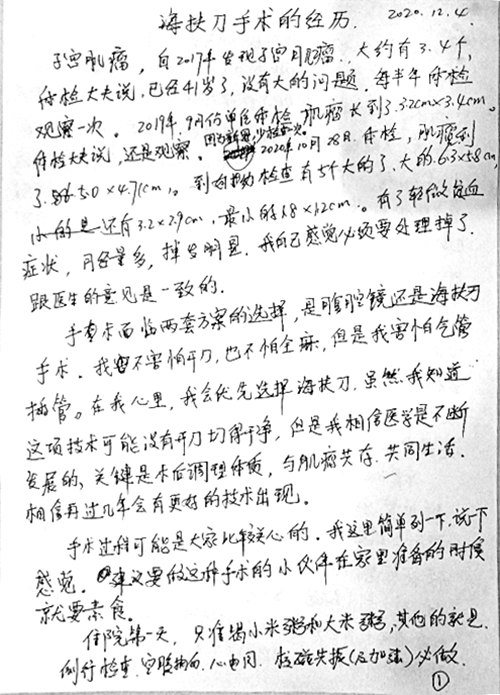 海扶刀手术的经历.
2020.12.4.
子宫肌瘤，自2017年发现子宫肌瘤.大约有3.4个,
体检大夫说,已经41岁了,没有大的问题.每半年体检
观察一次。2019年.9月份单位体检.肌瘤长到3.32cm×3.4cm。
体检大夫说,还是观察。少检查一次. 2020年10月28日.体检,肌瘤到
5.0×4.71cm。到 检查有5个大的了.大的6.3×5.8cm,
小的是还有3.2×2.9cm,最小的1.8×1.2cm。有了轻微贫血
症状,月经量多,掉发明显.我自己感觉必须要处理掉了.
跟医生的意见是一致的.
手术面临两套方案的选择,是腹腔镜还是海扶刀
手术.我不害怕开刀,也不怕全麻,但是我害怕气管
插管。在我心里,我会优先选择海扶刀.虽然我知道
这项技术可能没有开刀切得干净,但是我相信医学是不断
发展的,关键是术后调理体质,与肌瘤共存.共同生活.
相信再过几年会有更好的技术出现。
手术过程可能是大家比较关心的.我这里简单列一下,说下
感觉.建议要做这种手术的小伙伴在家里准备的时候
就要素食.
住院第一天,只准喝小米粥和大米粥,其他的就是.
例行检查.空腹抽血.心电图.核磁共振(及加强)必做.
①